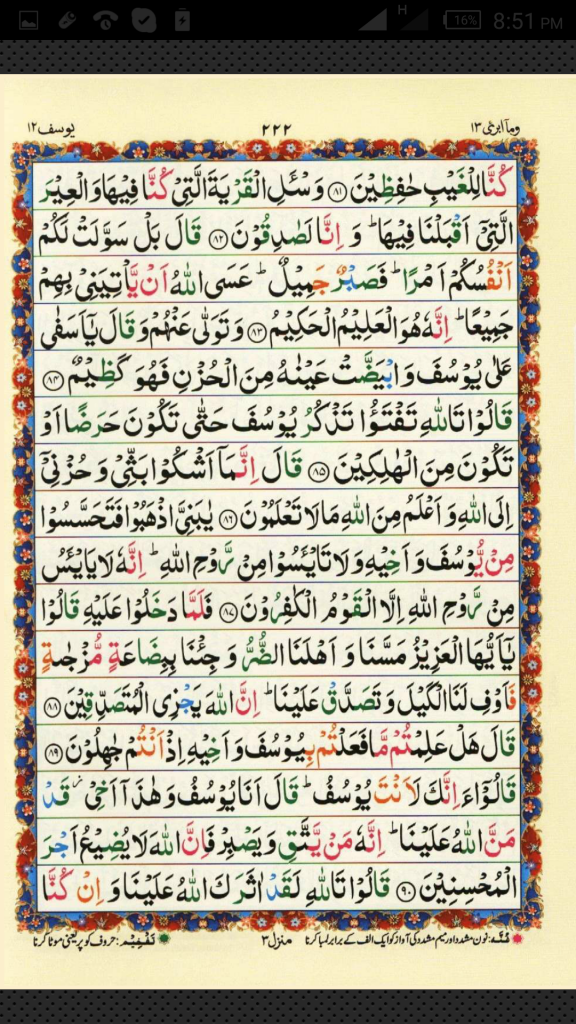 H 16% 8:51 PM
وما ابرئ ١٣ ٢٢٢ يوسف ١٢
كُنَّا لِلْغَيْبِ حٰفِظِيْنَ ﴿٨١﴾ وَسْـَٔلِ الْقَرْيَةَ الَّتِيْ كُنَّا فِيْهَا وَالْعِيْرَ
الَّتِيْٓ اَقْبَلْنَا فِيْهَا ؕ وَ اِنَّا لَصٰدِقُوْنَ ﴿٨٢﴾ قَالَ بَلْ سَوَّلَتْ لَكُمْ
اَنْفُسُكُمْ اَمْرًا ؕ فَصَبْرٌ جَمِيْلٌ ؕ عَسَى اللّٰهُ اَنْ يَّاْتِيَنِيْ بِهِمْ
جَمِيْعًا ؕ اِنَّهٗ هُوَ الْعَلِيْمُ الْحَكِيْمُ ﴿٨٣﴾ وَتَوَلّٰى عَنْهُمْ وَقَالَ يٰۤاَسَفٰى
عَلٰى يُوْسُفَ وَابْيَضَّتْ عَيْنٰهُ مِنَ الْحُزْنِ فَهُوَ كَظِيْمٌ ﴿٨٤﴾
قَالُوْا تَاللّٰهِ تَفْتَؤُا تَذْكُرُ يُوْسُفَ حَتّٰى تَكُوْنَ حَرَضًا اَوْ
تَكُوْنَ مِنَ الْهٰلِكِيْنَ ﴿٨٥﴾ قَالَ اِنَّمَاۤ اَشْكُوْا بَثِّيْ وَ حُزْنِيْۤ
اِلَى اللّٰهِ وَ اَعْلَمُ مِنَ اللّٰهِ مَا لَا تَعْلَمُوْنَ ﴿٨٦﴾ يٰبَنِيَّ اذْهَبُوْا فَتَحَسَّسُوْا
مِنْ يُّوْسُفَ وَ اَخِيْهِ وَ لَا تَايْـَٔسُوْا مِنْ رَّوْحِ اللّٰهِ ؕ اِنَّهٗ لَا يَايْـَٔسُ
مِنْ رَّوْحِ اللّٰهِ اِلَّا الْقَوْمُ الْكٰفِرُوْنَ ﴿٨٧﴾ فَلَمَّا دَخَلُوْا عَلَيْهِ قَالُوْا
يٰۤاَيُّهَا الْعَزِيْزُ مَسَّنَا وَ اَهْلَنَا الضُّرُّ وَ جِئْنَا بِبِضَاعَةٍ مُّزْجٰىةٍ
فَاَوْفِ لَنَا الْكَيْلَ وَ تَصَدَّقْ عَلَيْنَا ؕ اِنَّ اللّٰهَ يَجْزِى الْمُتَصَدِّقِيْنَ ﴿٨٨﴾
قَالَ هَلْ عَلِمْتُمْ مَّا فَعَلْتُمْ بِيُوْسُفَ وَ اَخِيْهِ اِذْ اَنْتُمْ جٰهِلُوْنَ ﴿٨٩﴾
قَالُوْۤا ءَاِنَّكَ لَاَنْتَ يُوْسُفُ ؕ قَالَ اَنَا يُوْسُفُ وَ هٰذَاۤ اَخِيْ ؗ قَدْ
مَنَّ اللّٰهُ عَلَيْنَا ؕ اِنَّهٗ مَنْ يَّتَّقِ وَ يَصْبِرْ فَاِنَّ اللّٰهَ لَا يُضِيْعُ اَجْرَ
الْمُحْسِنِيْنَ ﴿٩٠﴾ قَالُوْا تَاللّٰهِ لَقَدْ اٰثَرَكَ اللّٰهُ عَلَيْنَا وَ اِنْ كُنَّا
غُنَّه: نون مشدد اور میم مشدد کی آواز کو ایک الف کے برابر لمبا کرنا منزل ۳ تَفْخِيْم: حروف کو پر یعنی موٹا کرنا